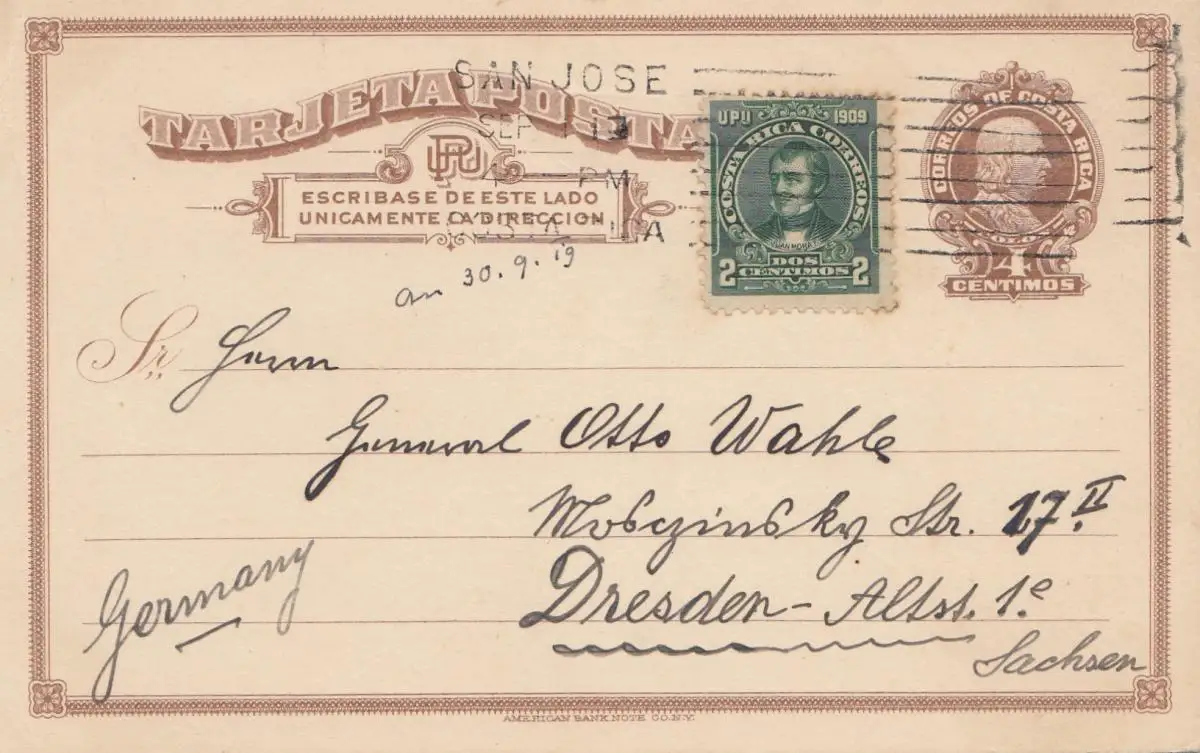 TARJETA POSTA
SAN JOSE
SEP
4 PM
UPU 1909
COSTA RICA CORREOS
JUAN MORA
DOS
2 CENTIMOS 2
CORREOS DE COSTA RICA
COLON
4
CENTIMOS
ESCRIBASE DE ESTE LADO
UNICAMENTE LA DIRECCION
an 30. 9. 19
Sr. Herrn
General Otto Wahle
Mosczinsky Str. 17. II
Dresden - Altst. 1.
Germany
Sachsen
AMERICAN BANK NOTE CO. N.Y.